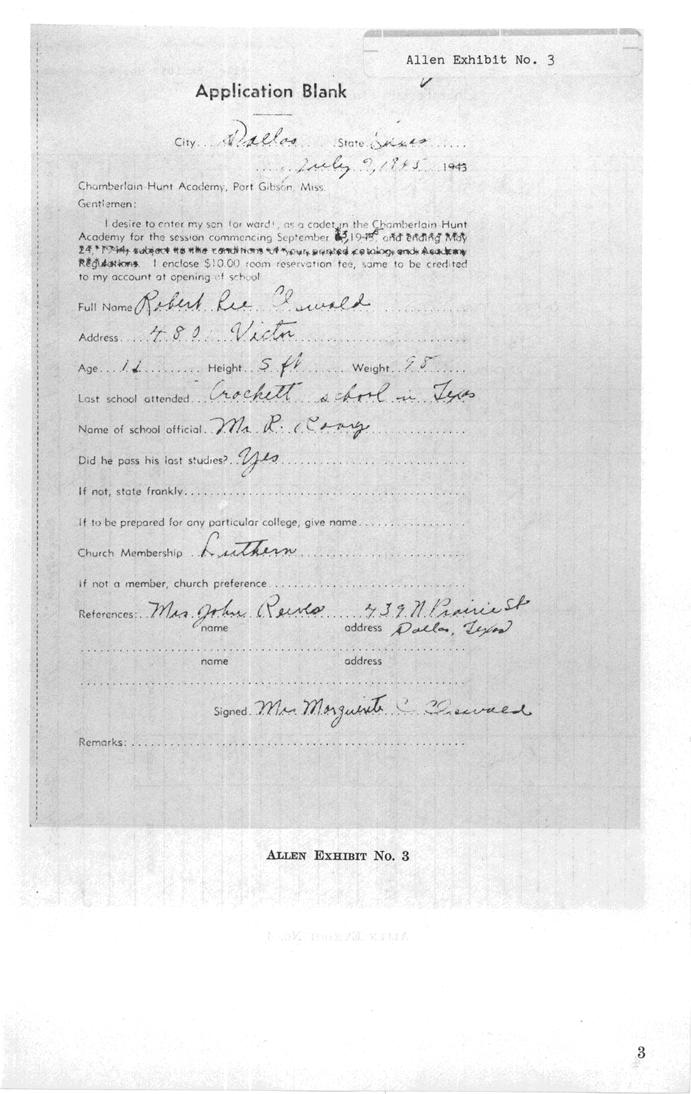 Allen Exhibit No. 3
Application Blank
City Dallas State Texas
July 9, 1945 1943
Chamberlain-Hunt Academy, Port Gibson, Miss.
Gentlemen:
I desire to enter my son (or ward), as a cadet in the Chamberlain-Hunt
Academy for the session commencing September 1945, and ending May
24, 1944, subject to the conditions of your printed catalog and Academy
Regulations. I enclose $10.00 room reservation fee, same to be credited
to my account at opening of school.
Full Name Robert Lee Oswald
Address 480 Victor
Age Height 5 ft Weight 95
Last school attended Crockett school in Texas
Name of school official Mr. R.
Did he pass his last studies? Yes
If not, state frankly
If to be prepared for any particular college, give name
Church Membership Luthern
If not a member, church preference
References: Mrs. John Reeves 439 N Prairie St
name address Dallas, Texas
name address
Signed Mrs Marguerite C Oswald
Remarks:
ALLEN EXHIBIT NO. 3
3